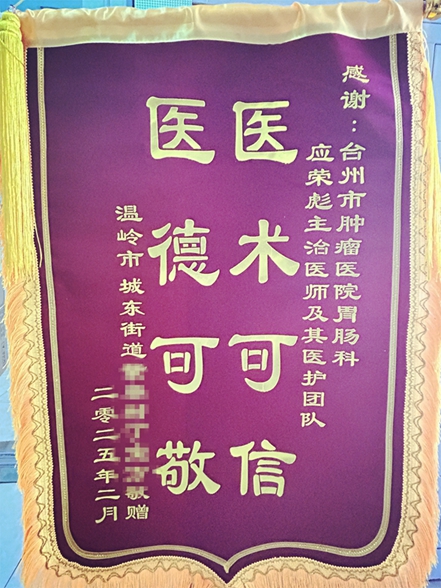 感谢：台州市肿瘤医院胃肠科
应荣彪主治医师及其医护团队
医术可信
医德可敬
温岭市 城东街道敬赠
二零二五年二月